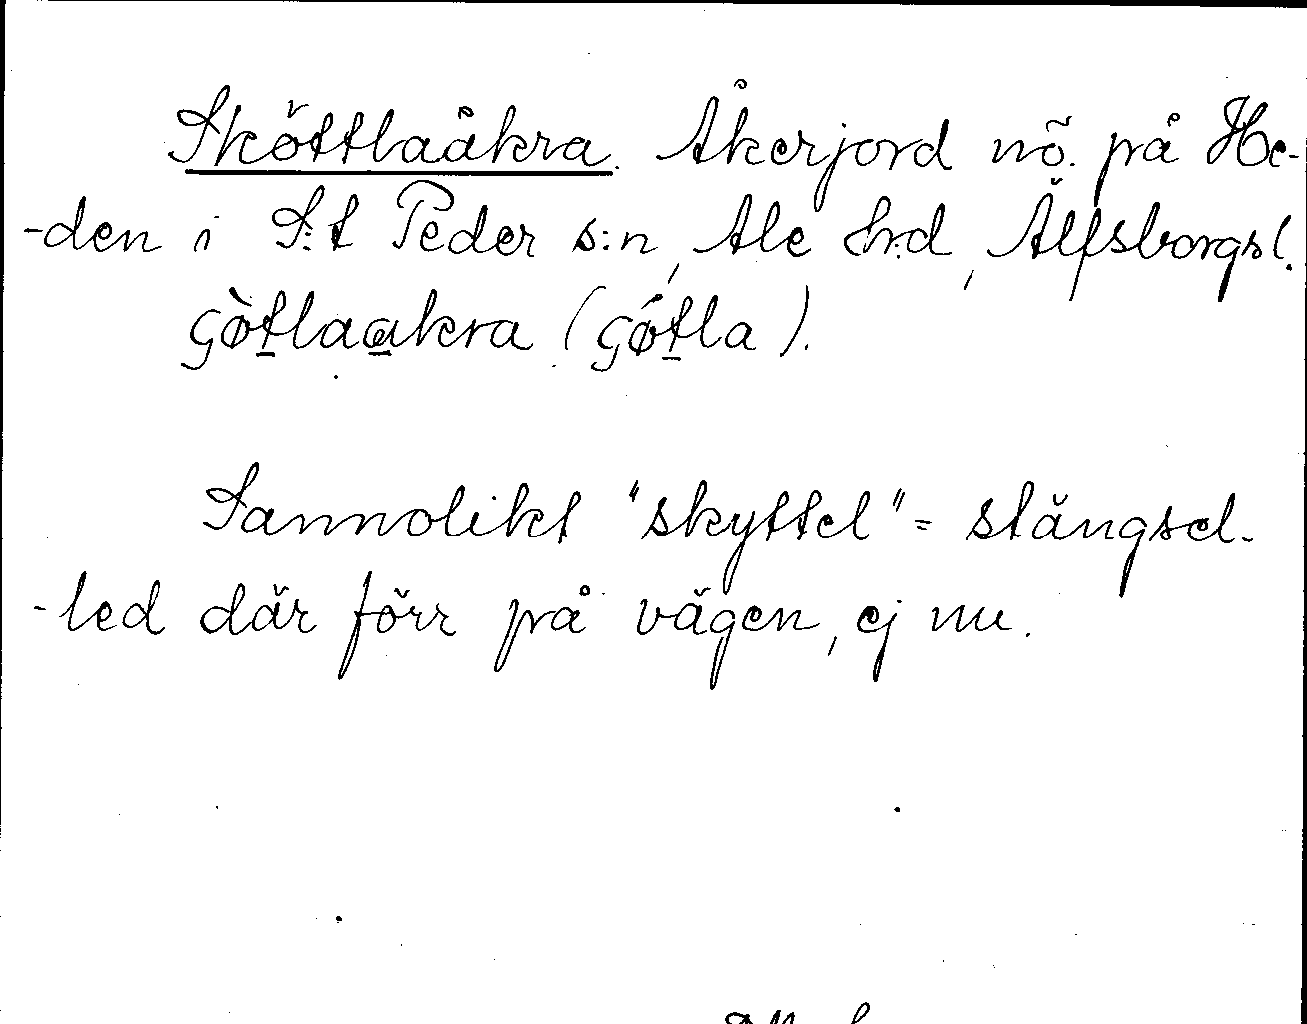 Sköttlaåkra. Åkerjord nö. på He-
-den i S:t Peder s:n, Ale hrd, Älfsborgs l.
çø̀t̲la<u>a</u>kra (çǿt̲la).
Sannolikt "skyttel" = stängsel-
-led där förr på vägen, ej nu.